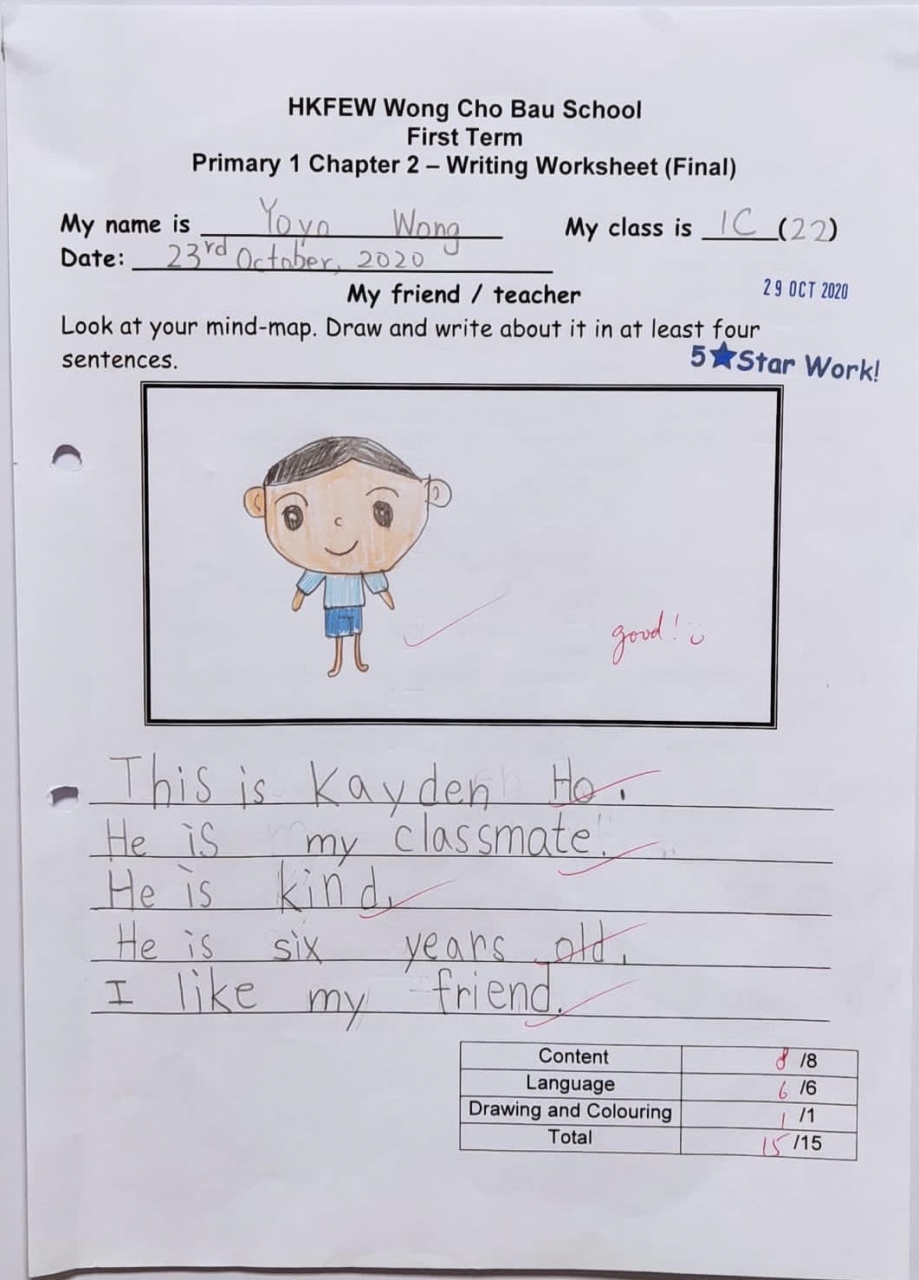 HKFEW Wong Cho Bau School
First Term
Primary 1 Chapter 2 – Writing Worksheet (Final)
My name is Yoyo Wong My class is 1C (22)
Date: 23rd October, 2020
29 OCT 2020
My friend / teacher
Look at your mind-map. Draw and write about it in at least four
sentences.
5★Star Work!
good!
This is Kayden Ho.
He is my classmate.
He is kind.
He is six years old.
I like my friend.
Content 8 /8
Language 6 /6
Drawing and Colouring 1 /1
Total 15 /15